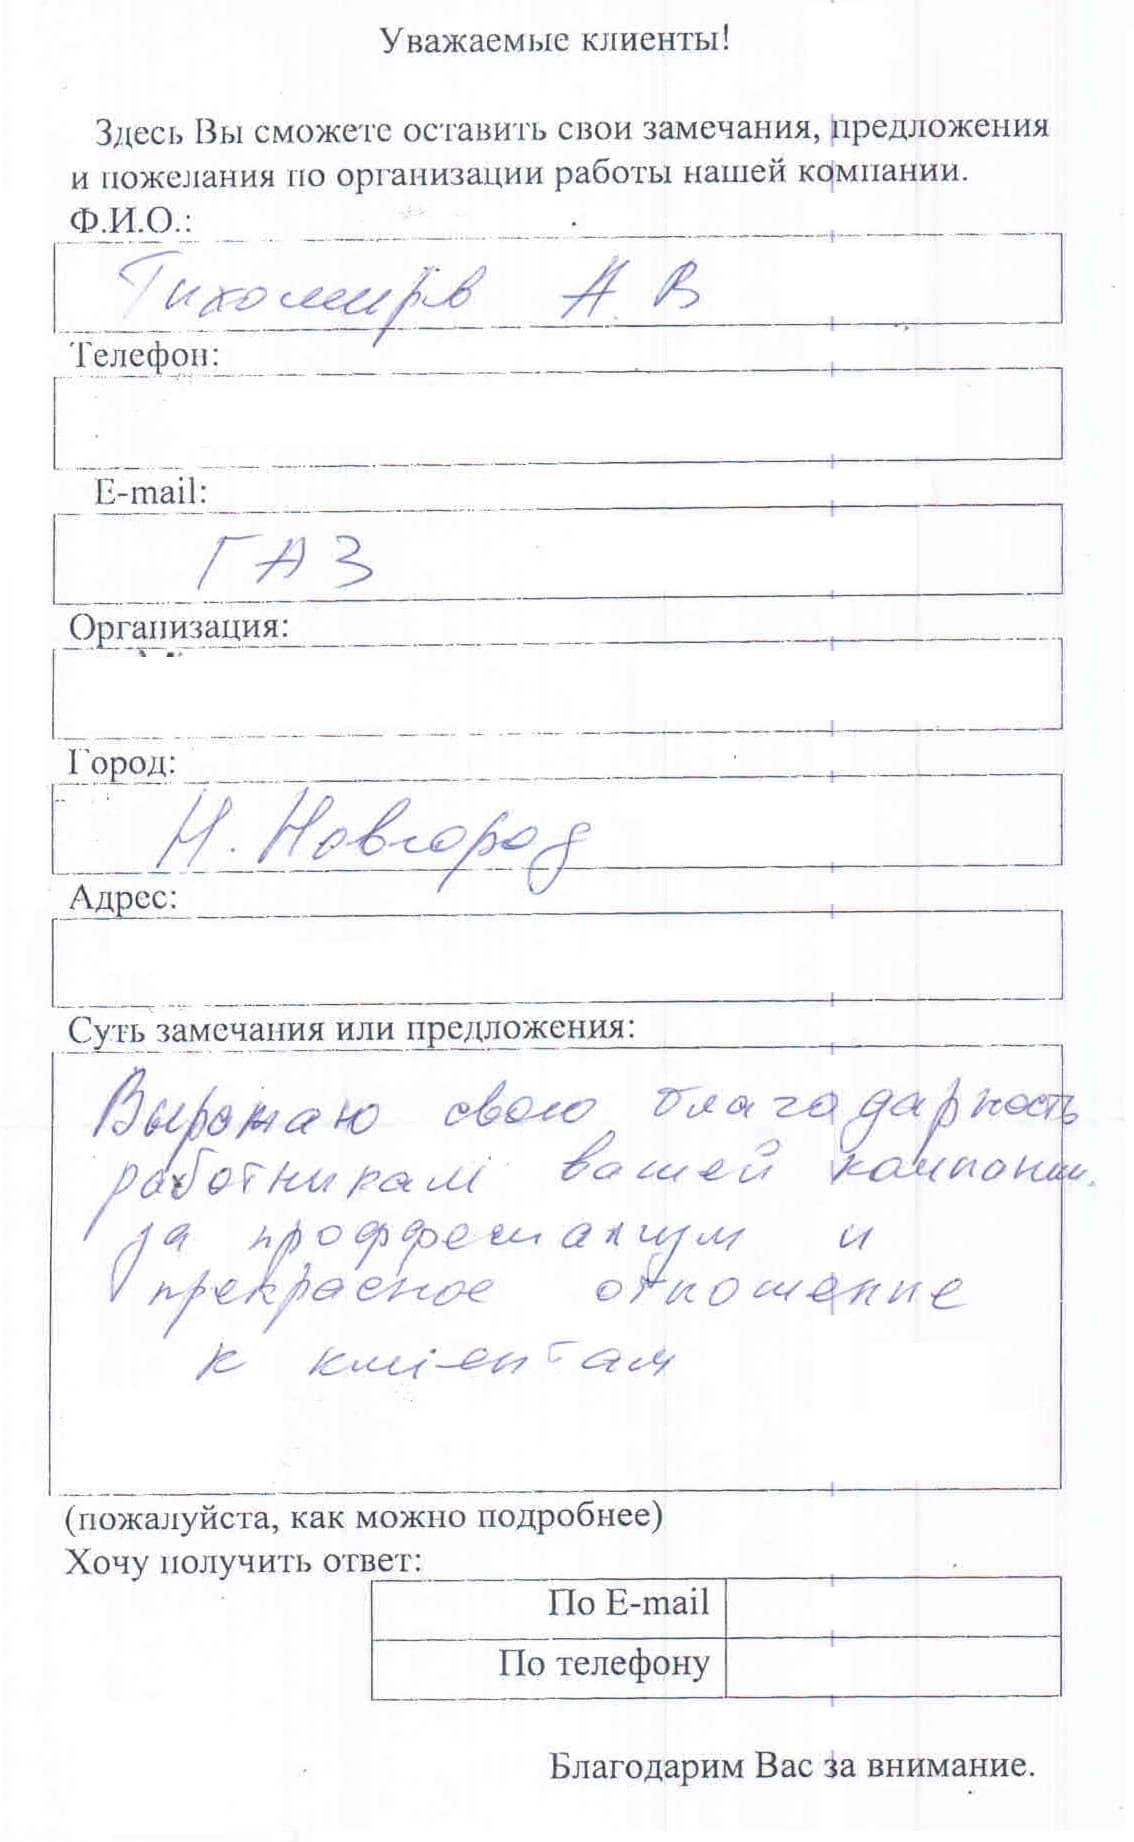 Уважаемые клиенты!
Здесь Вы сможете оставить свои замечания, предложения
и пожелания по организации работы нашей компании.
Ф.И.О.:
Тихомиров А. В
Телефон:
E-mail:
ГАЗ
Организация:
Город:
Н. Новгород
Адрес:
Суть замечания или предложения:
Выражаю свою благодарность
работникам вашей компании.
за проффесианлизм и
прекрасное отношение
к клиентам
(пожалуйста, как можно подробнее)
Хочу получить ответ:
По E-mail
По телефону
Благодарим Вас за внимание.